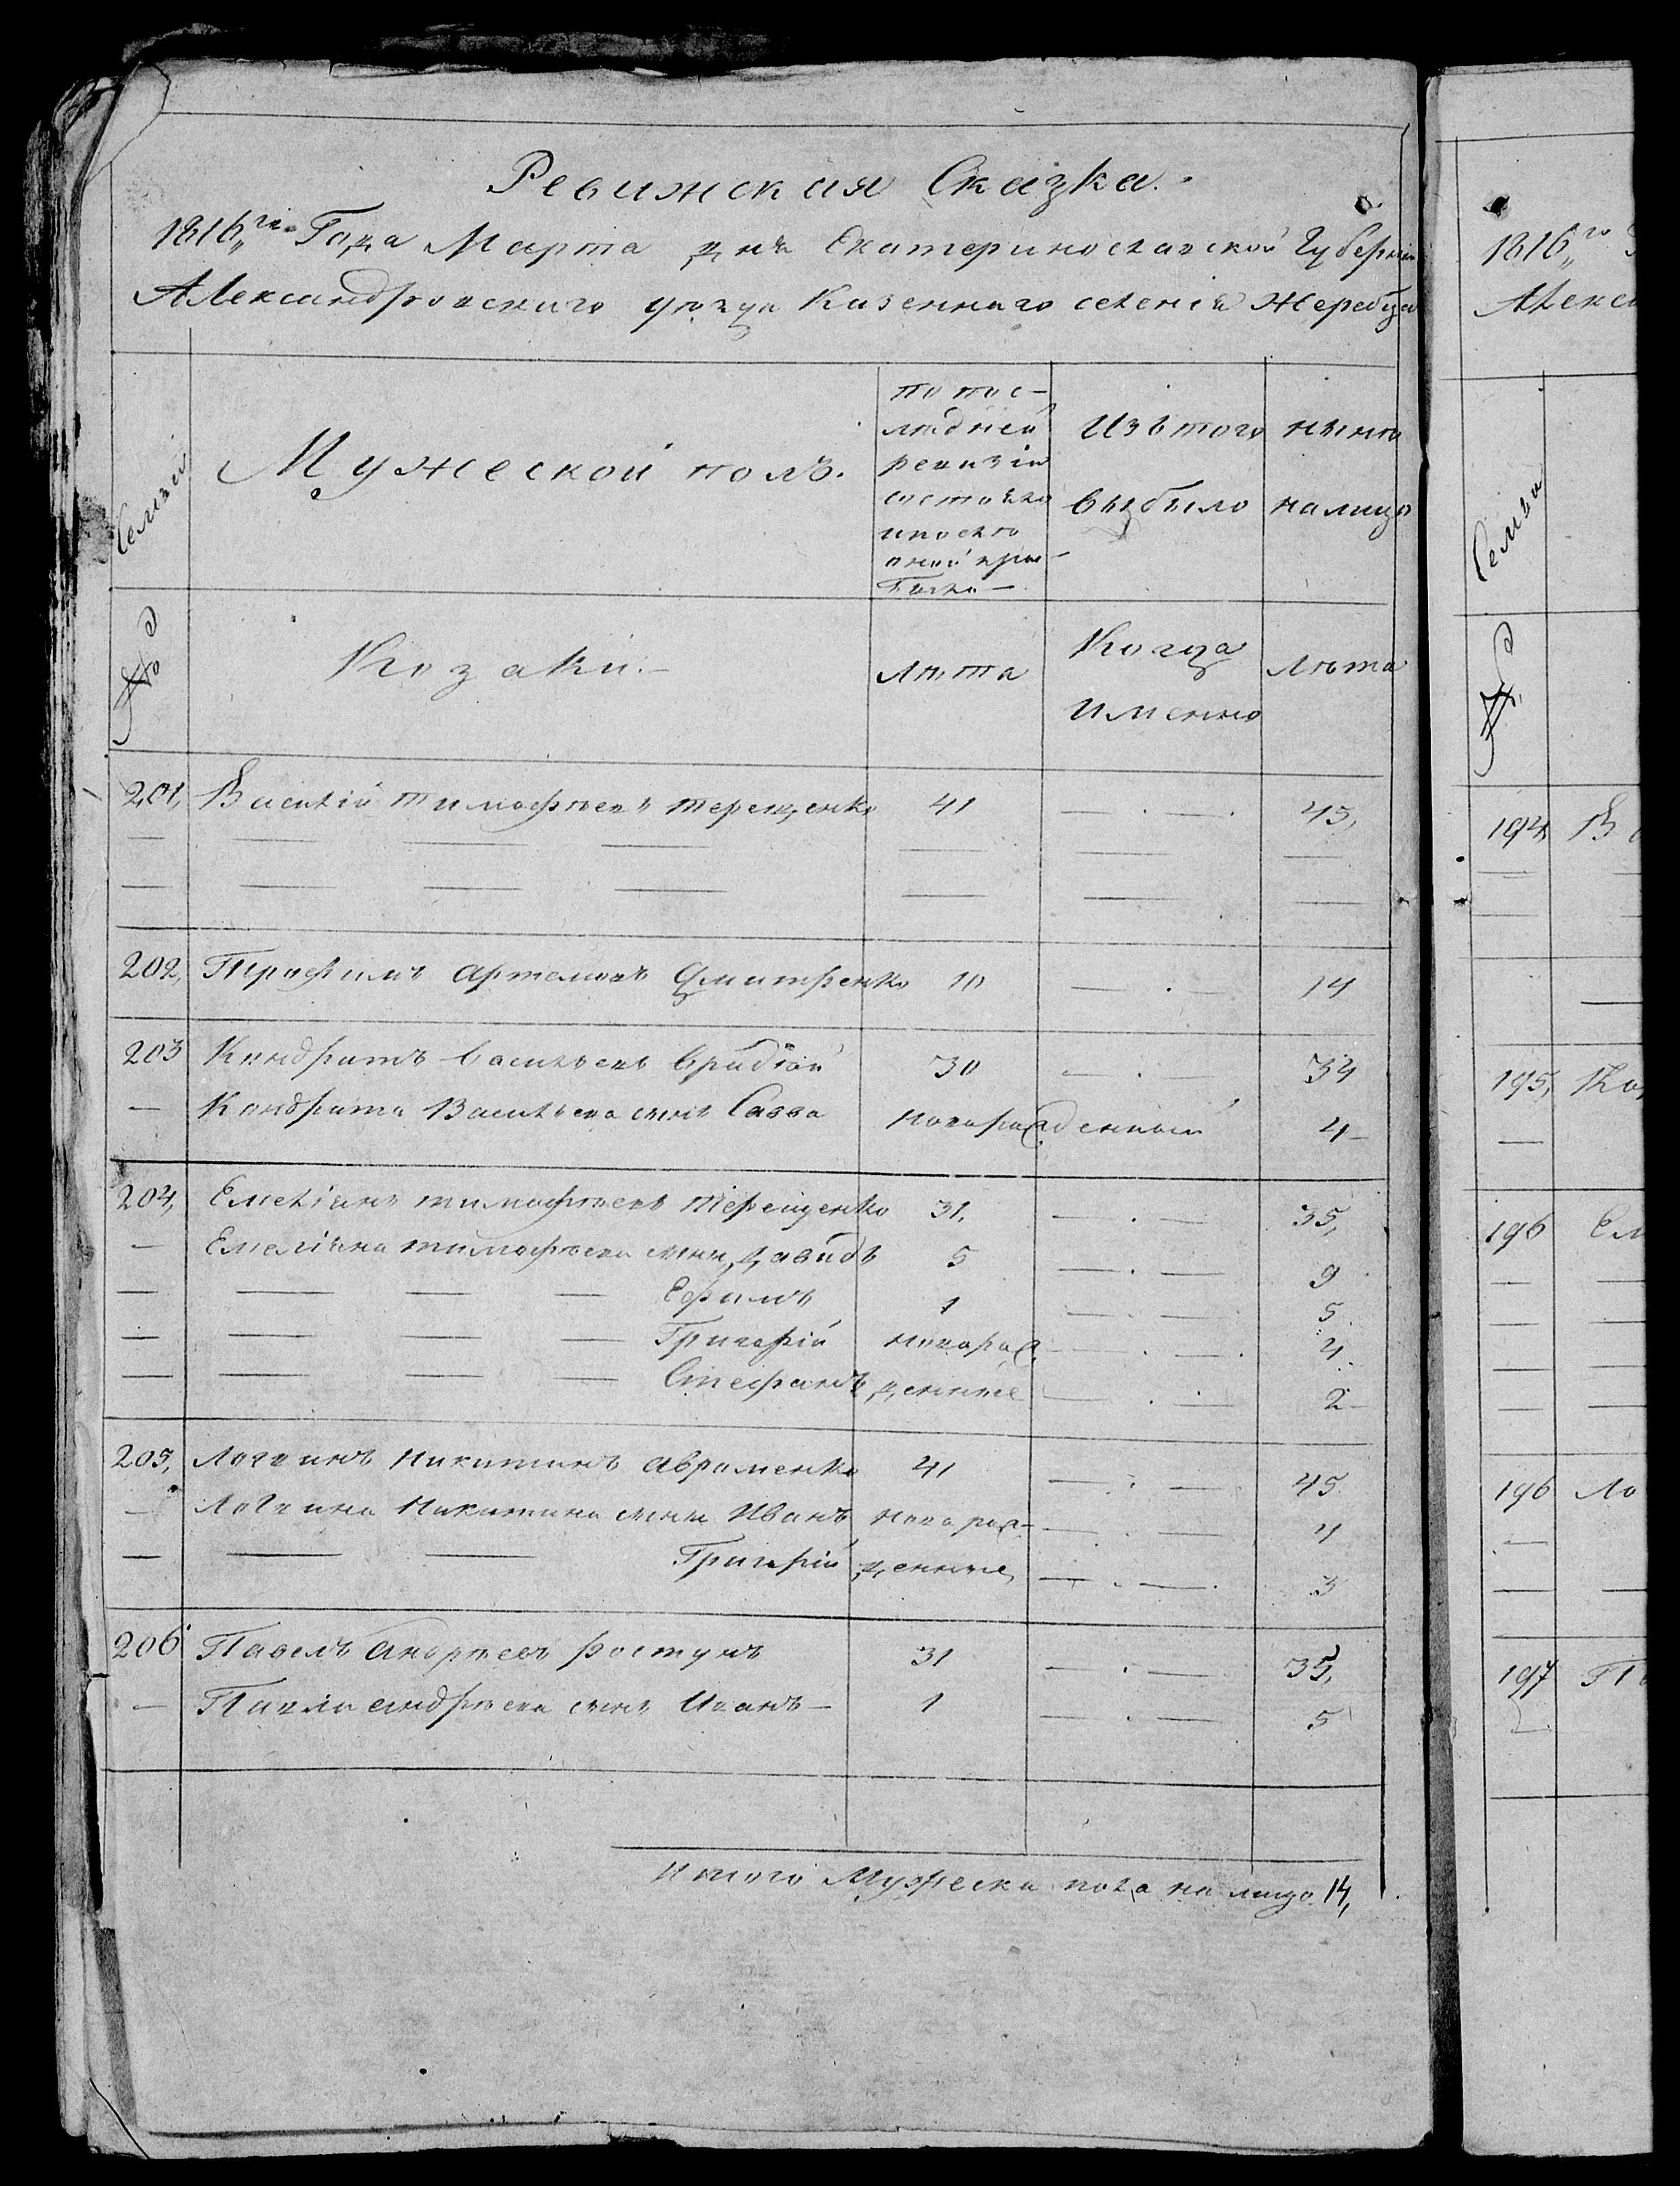 Ревижская Сказка.
1816,,го Года Марта дня Екатеринославской Губернии
Александровского уѣзда Казенного селенія Жеребца
Семьи
Мужеской полъ.
по пос-
лѣдней
ревизіи
состояло
и послѣ
оной при-
было
Изъ того
выбыло
нынѣ
налицо
№
Козаки.
лѣта
Когда
именно
лѣта
201, Василій тимофѣевъ терещенко 41 — . — . 45,
— — — — — — —
— — — — — — —
202, Трофимъ артемовъ дмитренко 10 — . — 14
203 Кондратъ васильевъ вридкой 30 — . — 34
— Кондрата Васильева сынъ Савва новорожденной 4
204, Емеліянъ тимофѣевъ терещенко 31, — . — 35,
— Емеліяна тимофѣева сыны, давидъ 5 — . — 9
— — — — Ефимъ 1 — . — 5
— — — — Григорій новорож — . — . 4
— — — — Стефанъ денные — . — 2
205, Логвинъ никитинъ авраменко 41 — . — 45
— Логвина Никитина сыны Иванъ новорож- — . — 4
— — — Григорій денные — . — . 3
206 Павелъ андрѣевъ ростунъ 31 — . — 35,
— Павла андрѣева сынъ Иванъ — 1 — . — 5
Итого Мужеска пола на лицо 14,
1816,,го
Алекса
Семьи
№
194, В
195, Ко
196 Ем
196 Ло
197 П